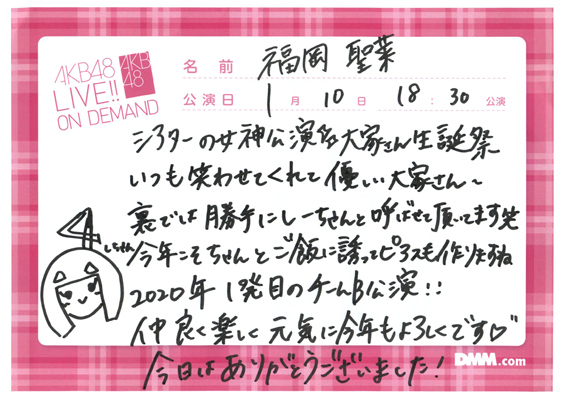 AKB48
LIVE!!
ON DEMAND
AKB
48
名前 福岡 聖菜
公演日 1月10日 18:30公演
シアターの女神公演&大家さん生誕祭
いつも笑わせてくれて優しい大家さん〜
裏では勝手にしーちゃんと呼ばせて頂いてます笑
しーちゃん
今年こそちゃんとご飯に誘ってピアスも作りますね
2020年1発目のチームB公演!!
仲良く楽しく元気に今年もよろしくです♡
今日はありがとうございました!
DMM.com